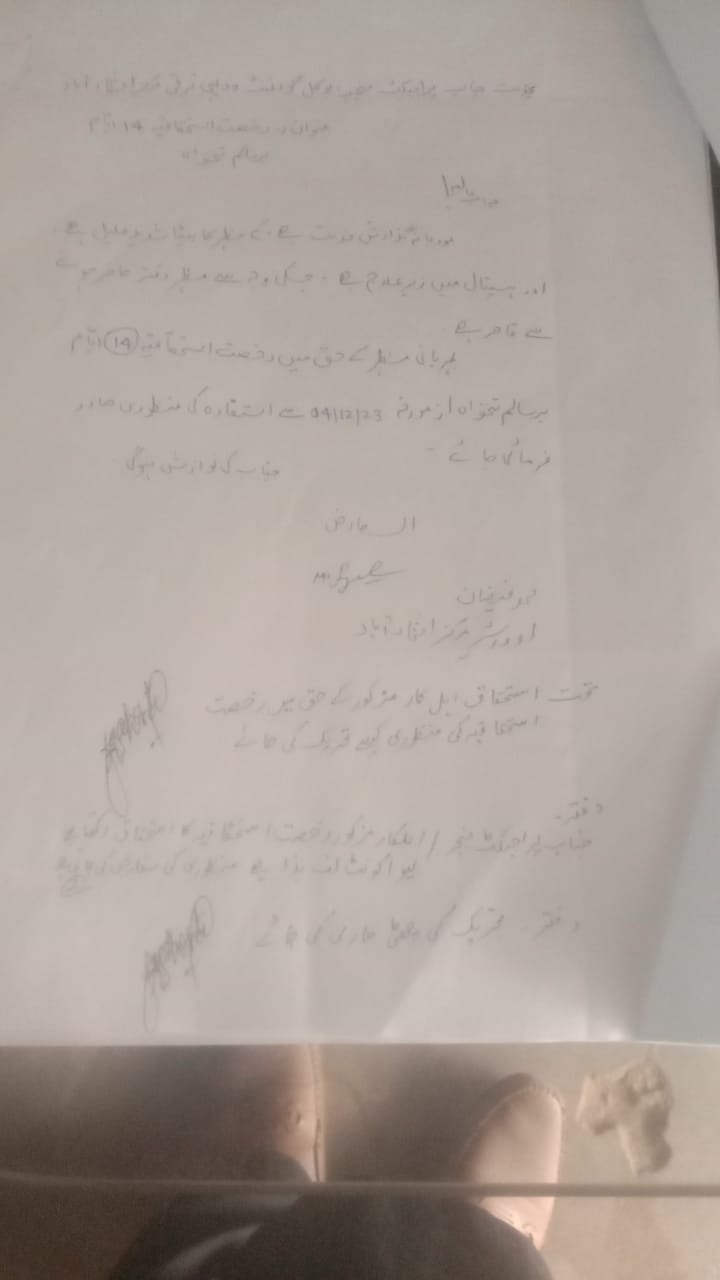 بخدمت جناب پراجیکٹ منیجر لوکل گورنمنٹ و دیہی ترقی
عنوان:۔ رخصت استحقاقیہ 14 ایام
برسالم تنخواہ
جناب عالی!
مودبانہ گذارش خدمت ہے کہ مظہر کا بیٹا شدید علیل ہے
اور ہسپتال میں زیر علاج ہے ۔ جسکی وجہ سے مظہر دفتر حاضر ہونے
سے قاصر ہے ۔
مہربانی مظہر کے حق میں رخصت استحقاقیہ 14 ایام
برسالم تنخواہ از مورخہ 04/12/23 سے استفادہ کی منظوری صادر
فرمائی جائے ۔
جناب کی نوازش ہوگی
العارض
محمد فیضان
اوورسیر مرکز
تحت استحقاق اہل کار مذکور کے حق میں رخصت
استحقاقیہ کی منظوری کیلئے تحریک کی جائے
دفتر ۔
جناب پراجیکٹ منیجر / اہلکار مذکور رخصت استحقاقیہ کا استحقاق رکھتا ہے
لیو اکونٹ لف ہذا ہے منظوری کی سفارش کی جاتی ہے
دفتر ۔ تحریک کی چھٹی جاری کی جائے